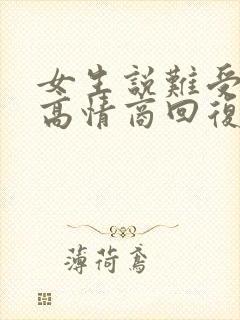 女生說難受
高情商回復
薄荷鳶